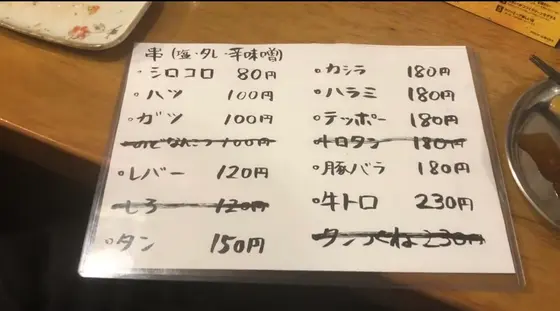 串(塩・タレ・辛味噌)
・シロコロ 80円
・ハツ 100円
・ガツ 100円
のどなんこつ 100円
・レバー 120円
しろ 120円
・タン 150円
・カシラ 180円
・ハラミ 180円
・テッポー 180円
トロタン 180円
・豚バラ 180円
・牛トロ 230円
タンつくね 230円